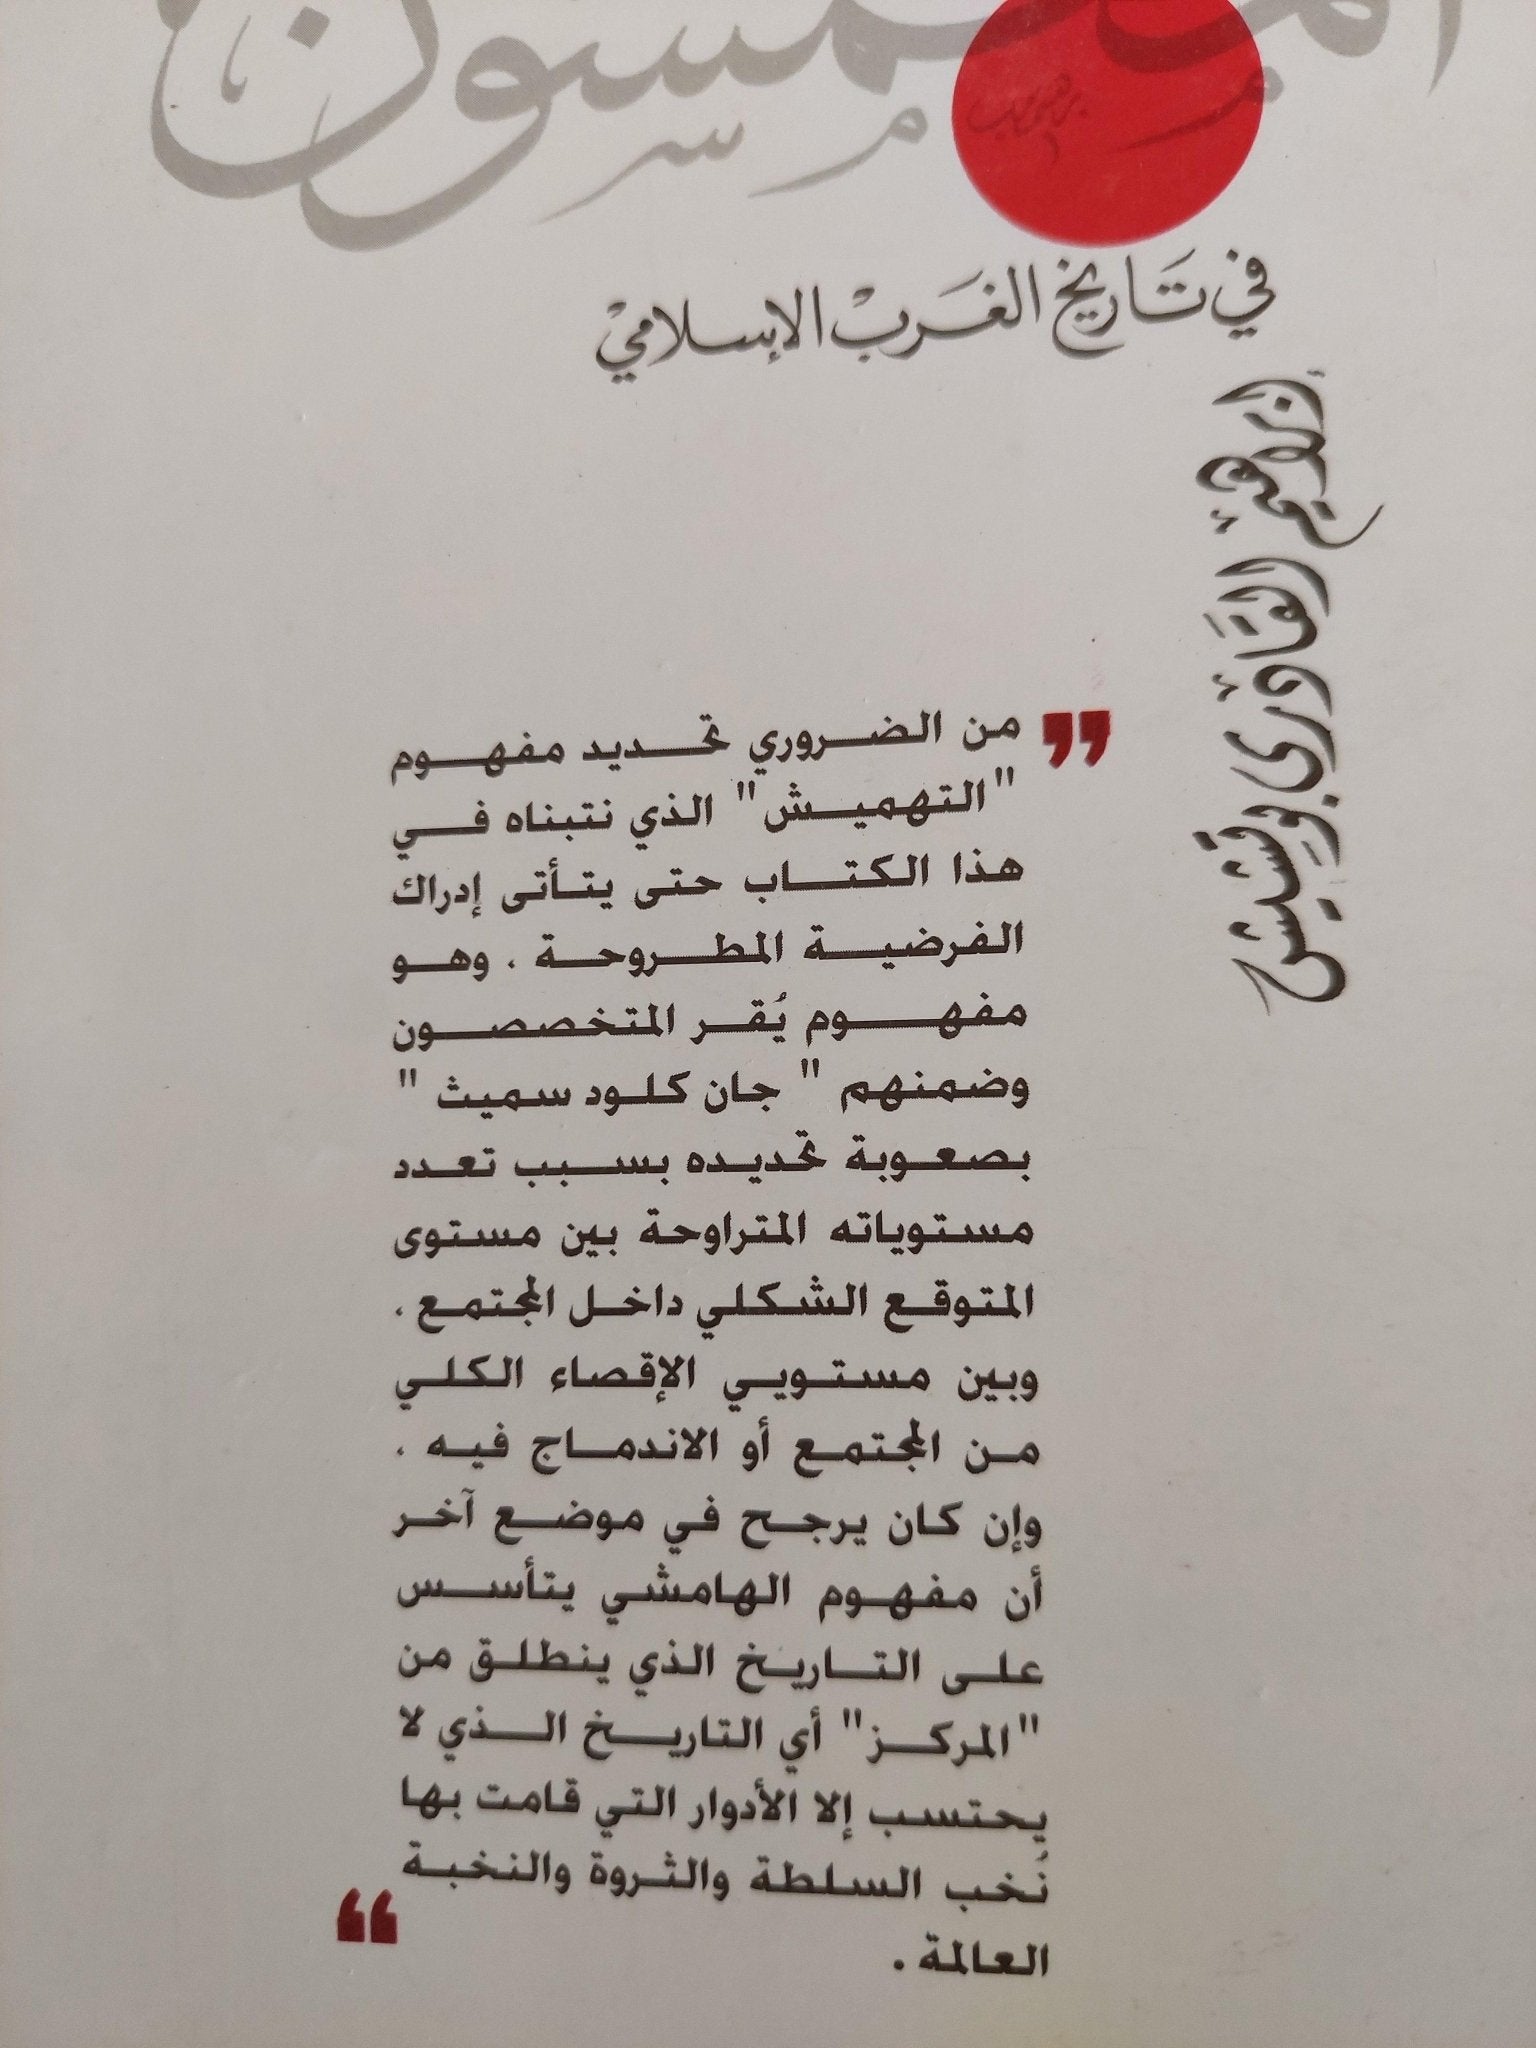 المهمشون
في تاريخ الغرب الإسلامي
إبراهيم القادري بوتشيش
من الضروري تحديد مفهوم
"التهميش" الذي نتبناه في
هذا الكتاب حتى يتأتى إدراك
الفرضية المطروحة . وهو
مفهوم يُقر المتخصصون
وضمنهم " جان كلود سميث "
بصعوبة تحديده بسبب تعدد
مستوياته المتراوحة بين مستوى
المتوقع الشكلي داخل المجتمع .
وبين مستويي الإقصاء الكلي
من المجتمع أو الاندماج فيه .
وإن كان يرجح في موضع آخر
أن مفهوم الهامشي يتأسس
على التاريخ الذي ينطلق من
"المركز" أي التاريخ الذي لا
يحتسب إلا الأدوار التي قامت بها
نُخب السلطة والثروة والنخبة
العالمة .